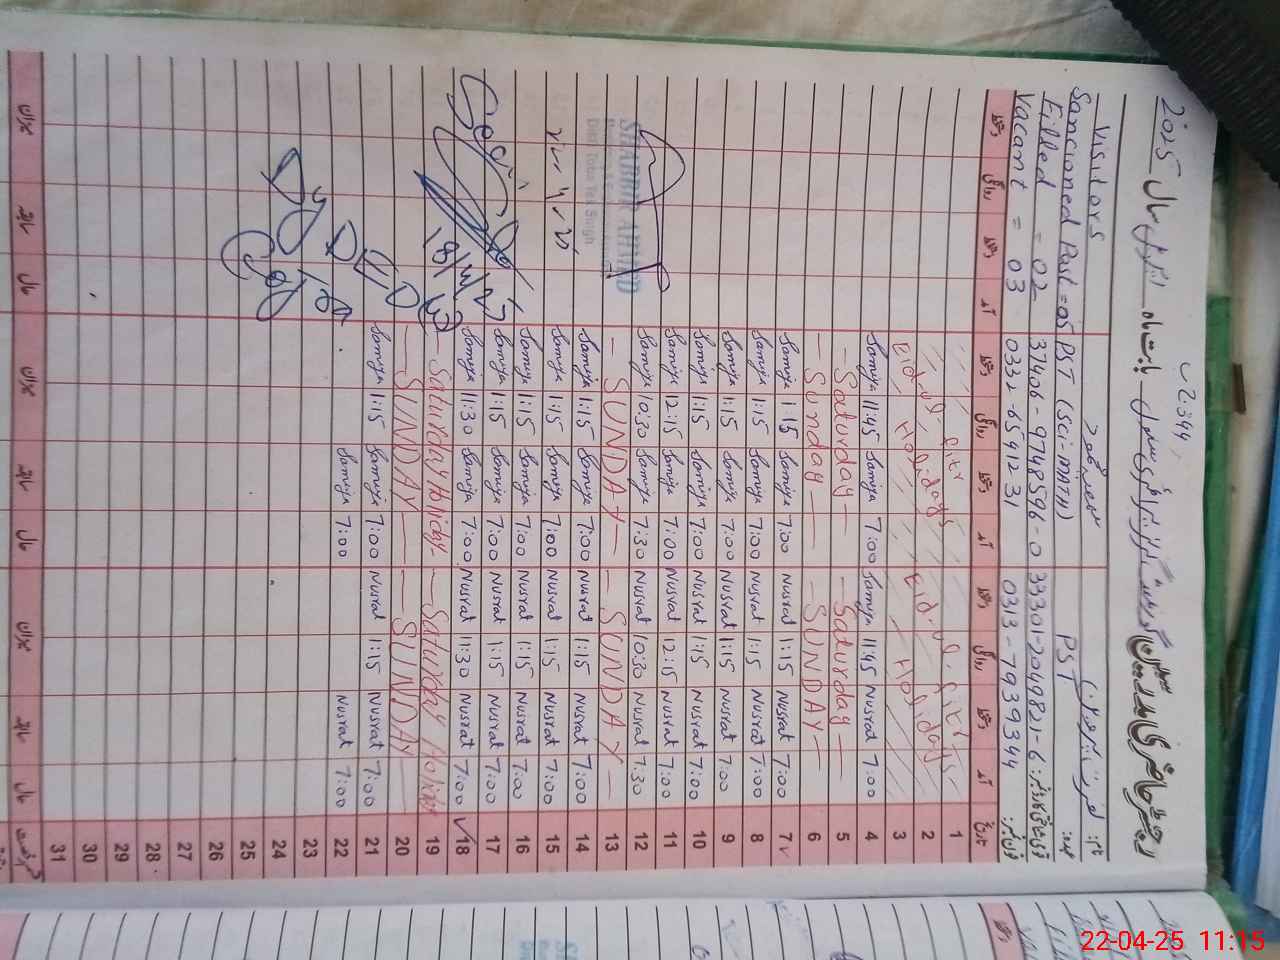 2344
رجسٹر حاضری گورنمنٹ گرلز پرائمری سکول بابت ماہ اپریل سال 2025
Visitors
نام:
Sancioned Post = 05 PST (Sci-MATH) PST عہدہ:
Filled = 02 37406-9748596-0 33301-2049821-6
Vacant = 03 0332-6541231 0313-7939344 فون نمبر:
دستخط روانگی دستخط آمد دستخط روانگی دستخط آمد دستخط روانگی دستخط آمد تاریخ
1
Eid-ul-fitr Eid.ul.fitr 2
Holidays Holidays 3
Samiya 11:45 Samiya 7:00 Samiya 11:45 Nusrat 7:00 4
Saturday Saturday 5
Sunday SUNDAY 6
Samiya 1:15 Samiya 7:00 Nusrat 1:15 Nusrat 7:00 7
Samiya 1:15 Samiya 7:00 Nusrat 1:15 Nusrat 7:00 8
Samiya 1:15 Samiya 7:00 Nusrat 1:15 Nusrat 7:00 9
Samiya 1:15 Samiya 7:00 Nusrat 1:15 Nusrat 7:00 10
Samiya 12:15 Samiya 7:00 Nusrat 12:15 Nusrat 7:00 11
Samiya 10:30 Samiya 7:30 Nusrat 10:30 Nusrat 7:30 12
SHABBIR AHMED
Distt Toba Tek Singh
SUNDAY SUNDAY 13
Samiya 1:15 Samiya 7:00 Nusrat 1:15 Nusrat 7:00 14
Samiya 1:15 Samiya 7:00 Nusrat 1:15 Nusrat 7:00 15
Samiya 1:15 Samiya 7:00 Nusrat 1:15 Nusrat 7:00 16
Samiya 1:15 Samiya 7:00 Nusrat 1:15 Nusrat 7:00 17
Samiya 11:30 Samiya 7:00 Nusrat 11:30 Nusrat 7:00 18
Saturday Holiday Saturday Holiday 19
SUNDAY SUNDAY 20
Samiya 1:15 Samiya 7:00 Nusrat 1:15 Nusrat 7:00 21
Samiya 7:00 Nusrat 7:00 22
23
24
25
26
27
28
29
30
31
میزان سابقہ حال میزان سابقہ حال میزان سابقہ حال
22-04-25 11:15